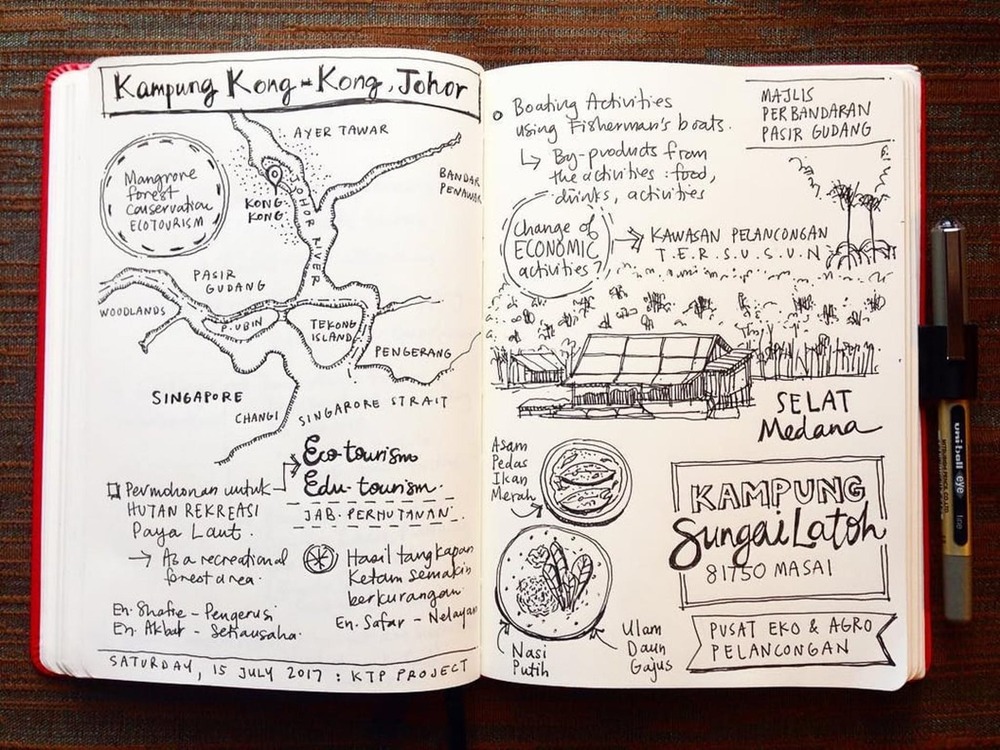 Kampung Kong-Kong, Johor
Mangrove
forest
Conservation
ECOTOURISM
AYER TAWAR
BANDAR
PENAWAR
KONG
KONG
JOHOR RIVER
PASIR
GUDANG
WOODLANDS
P. UBIN
TEKONG
ISLAND
PENGERANG
SINGAPORE
CHANGI
SINGAPORE STRAIT
Eco-tourism
Edu-tourism.
JAB. PERHUTANAN
Permohonan untuk
HUTAN REKREASI
Paya Laut.
→ As a recreational
forest area.
Hasil tangkapan
Ketam semakin
berkurangan.
En. Shafie - Pengerusi
En. Akbar - Setiausaha.
En. Safar - Nelayan
SATURDAY, 15 JULY 2017 : KTP PROJECT
Boating Activities
using Fisherman's boats.
↳ By-products from
the activities : food,
drinks, activities
MAJLIS
PERBANDARAN
PASIR GUDANG
Change of
ECONOMIC
activities?
→ KAWASAN PELANCONGAN
T.E.R.S.U.S.U.N
SELAT
Medana
Asam
Pedas
Ikan
Merah
Nasi
Putih
Ulam
Daun
Gajus
KAMPUNG
Sungai Latoh
81750 MASAI
PUSAT EKO & AGRO
PELANCONGAN
uni-ball eye
fine